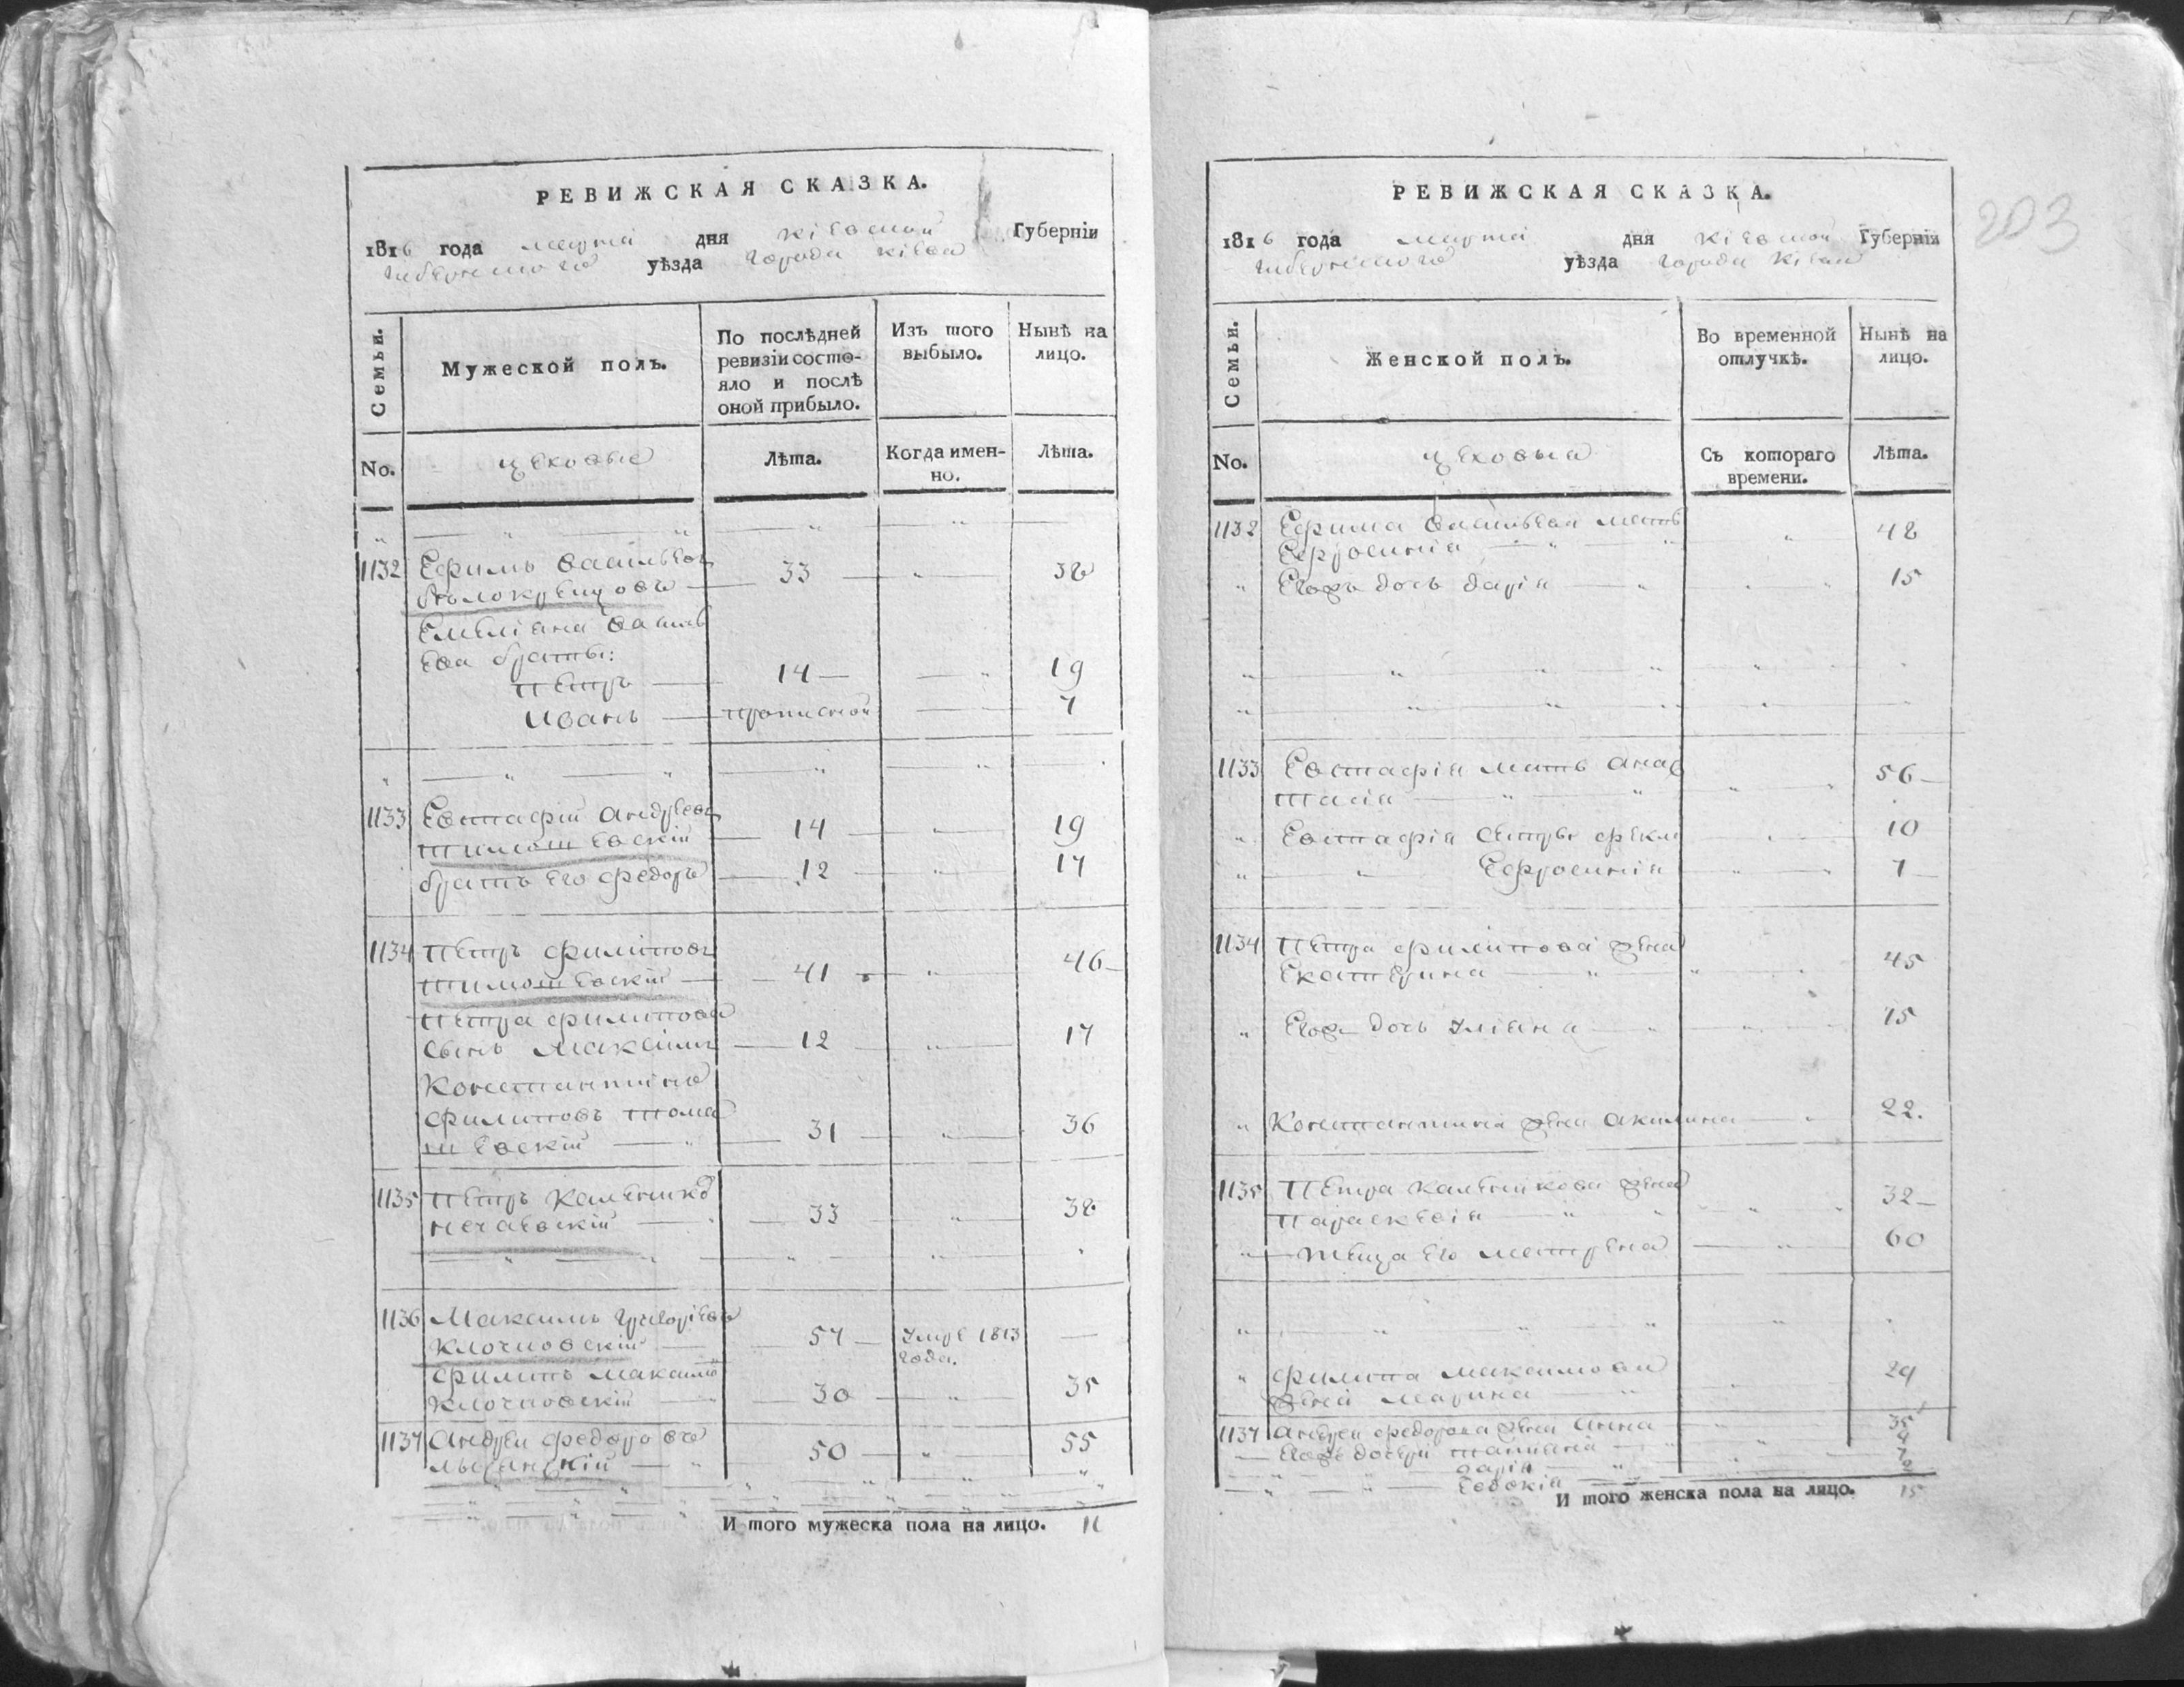 РЕВИЖСКАЯ СКАЗКА.
1816 года марта дня Кіевской Губерніи
уѣзда города Кіева
Семьи.
Мужеской полъ.
По послѣдней
ревизіи состо-
яло и послѣ
оной прибыло.
Изъ того
выбыло.
Нынѣ на
лицо.
No.
цеховые
Лѣта.
Когда имен-
но.
Лѣта.
1132 Ефимъ Васильевъ
33 38
Емеліана Василь
ева братья:
Петръ 14 19
Иванъ прописной 7
1133 Евстафій Андреевъ
Тимошевскій 14 19
братъ его Федоръ 12 17
1134 Петръ Филиповъ
Тимошевскій 41 46
Петра Филипова
сынъ Максимъ 12 17
Константинъ
Филиповъ Тома
шевскій 31 36
1135 Петръ Калениковъ
Нечаевскій 33 38
1136 Максимъ Григоріевъ
Клочковскій 57 Умре 1813
года.
Филипъ Максимовъ
Клочковскій 30 35
1137 Андрей Федоровъ
50 55
И того мужеска пола на лицо. 11
РЕВИЖСКАЯ СКАЗКА.
203
1816 года марта дня Кіевской Губерніи
уѣзда города Кіева
Семьи.
Женской полъ.
Во временной
отлучкѣ.
Нынѣ на
лицо.
No.
цеховыя
Съ котораго
времени.
Лѣта.
1132 Ефима Васильева мать
Ефросинія 48
Егожъ дочь Дарія 15
1133 Евстафія мать Анас
тасія 56
Евстафія сестры Фекла 10
Ефросинія 7
1134 Петра Филипова жена
Екатерина 45
Егожъ дочь Уліяна 15
Константина жена Акилина 22.
1135 Петра Каленикова жена
Параскевія 32
Теща его Матрена 60
Филипа Максимова
жена Марина 29
1137 Андрея Федорова жена Анна 35
Егожъ дочери Татіяна
Дарія 7
Евдокія 2
И того женска пола на лицо. 15